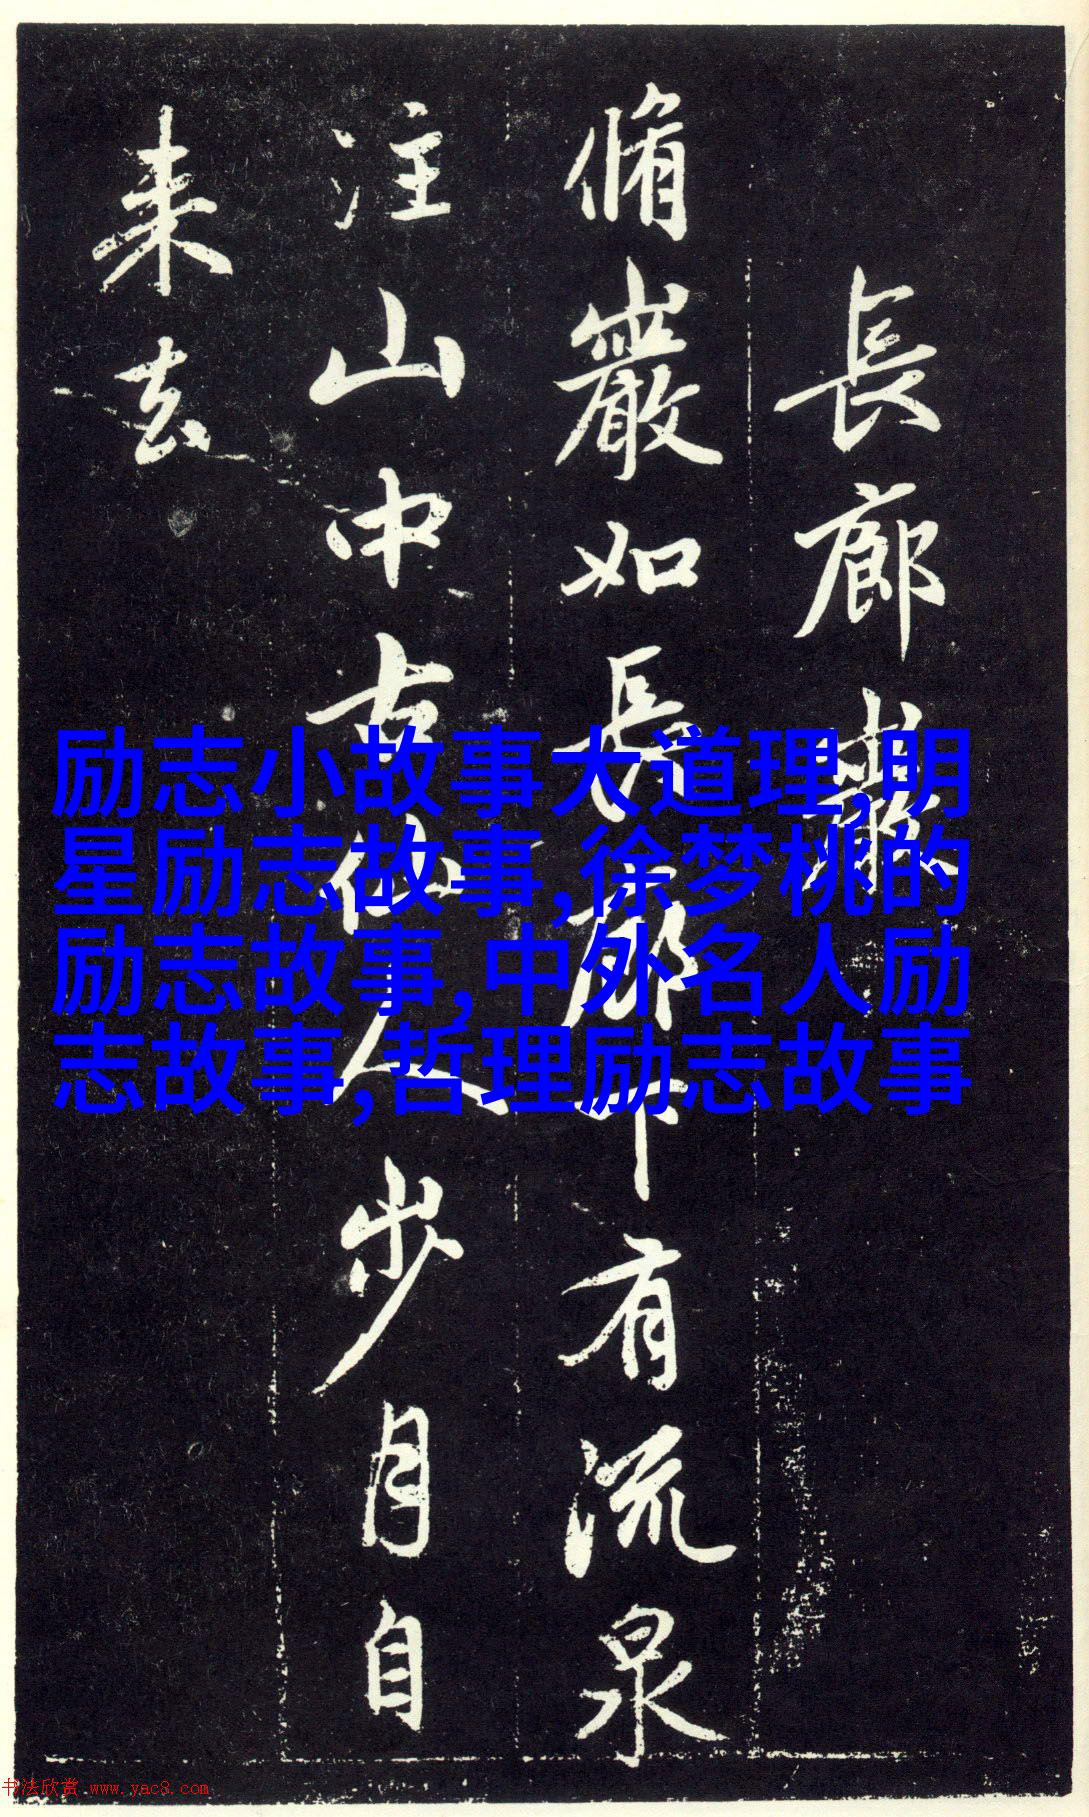 長廊巖
脩巖如長廊下有流泉
注山中古仙人步月自
来去
励志小故事大道理,明
星励志故事,徐梦桃的
励志故事,中外名人励
志故事,哲理励志故事
书法欣赏 www.yac8.com